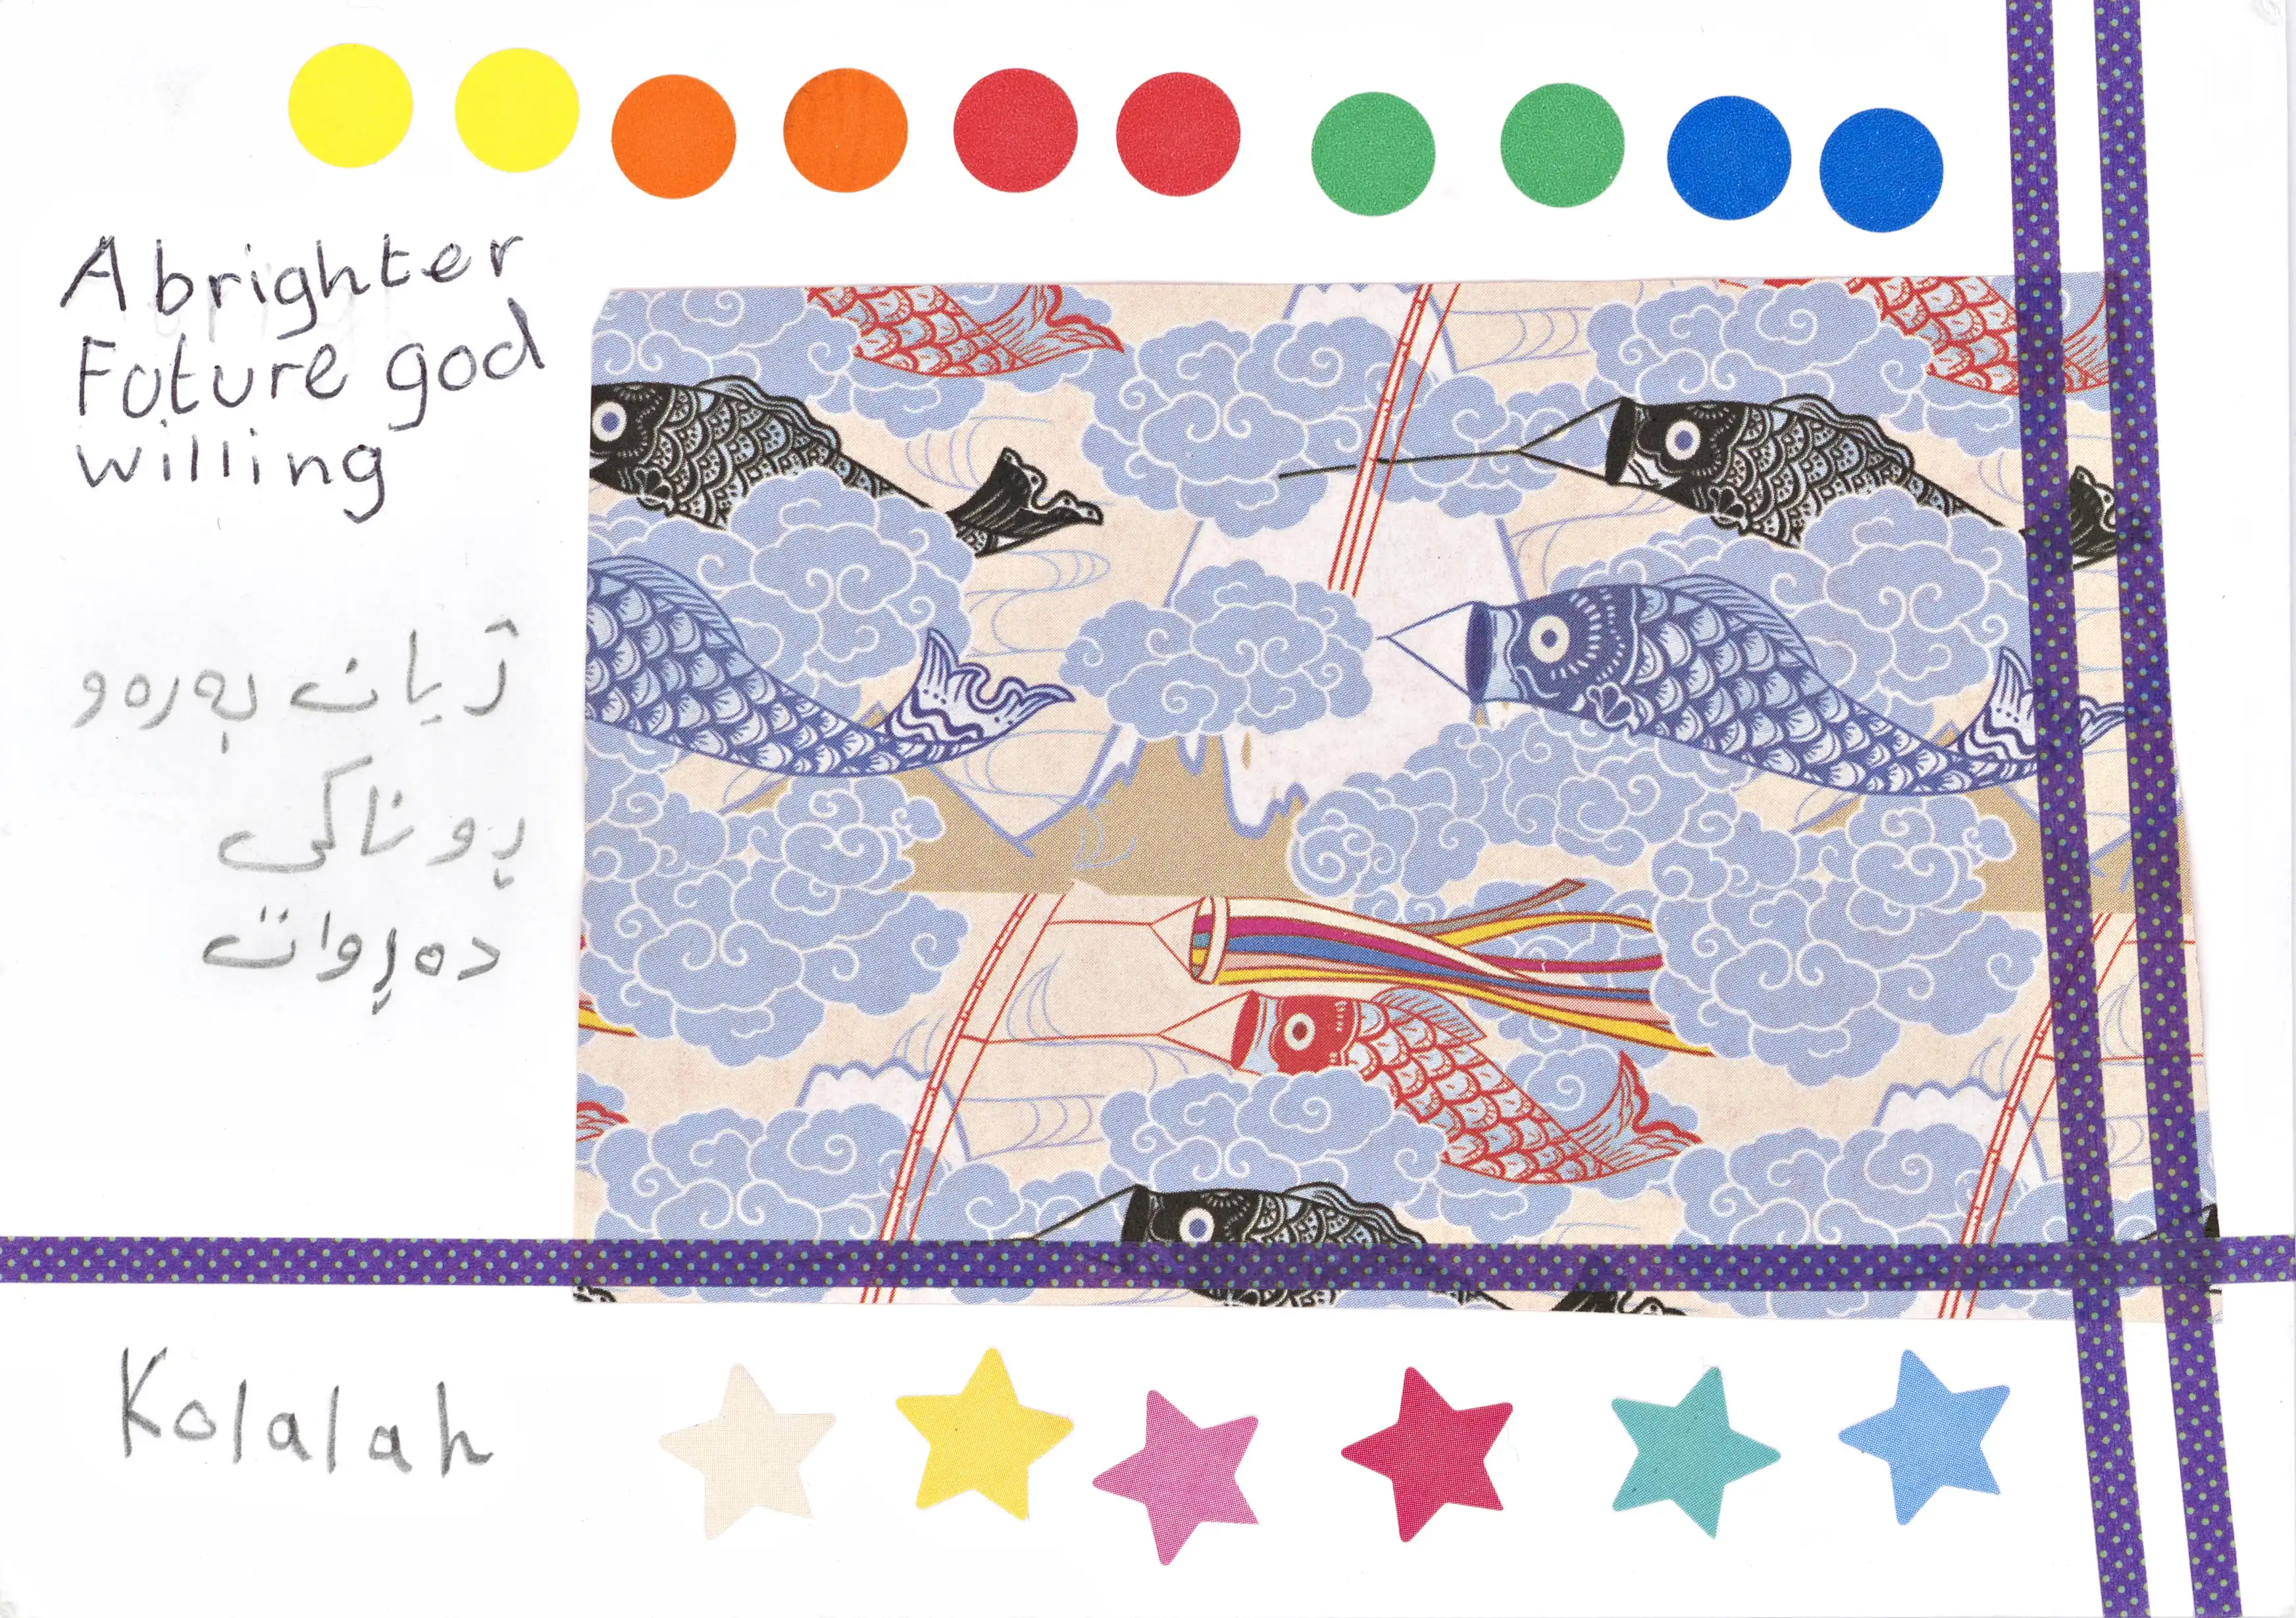 A brighter
Future god
willing
ژیان بەرەو
ڕوناکی
دەڕوات
Kolalah